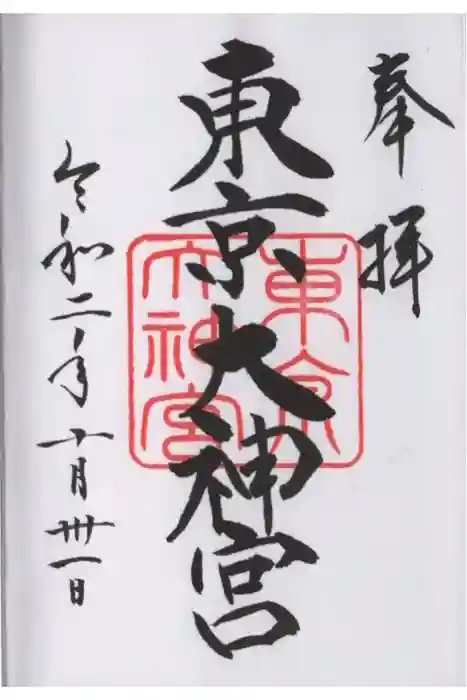 奉拝
東京大神宮
東京大神宮
令和二年十月卅一日